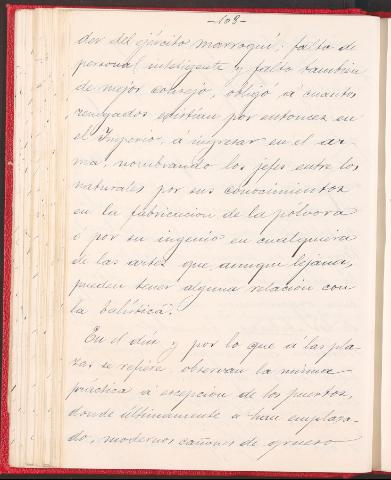 -109-
der del ejército marroquí: falto de
personal inteligente y falto tambien
de mejor consejo, obligó á cuantos
renegados existian por entonces en
el Imperio, á ingresar en el ar-
ma, nombrando los jefes entre los
naturales por sus conocimientos
en la fabricacion de la pólvora
ó por su ingenio en cualquiera
de las artes que aunque lejana,
pueden tener alguna relación con
la balística.
En el dia y por lo que á las pla-
zas se refiere, observan la misma
práctica á escepcion de los puertos,
donde últimamente se han emplaza-
do, modernos cañones de grueso